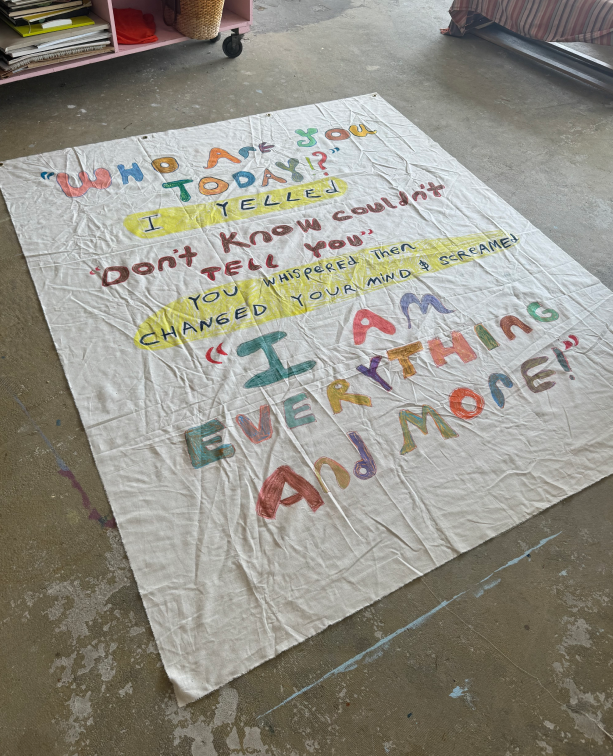 "WHO ARE YOU
TODAY!?"
I YELLED
"DON'T KNOW COULDN'T
TELL YOU"
YOU WHISPERED THEN
CHANGED YOUR MIND & SCREAMED
"I AM
EVERYTHING
AND MORE!"